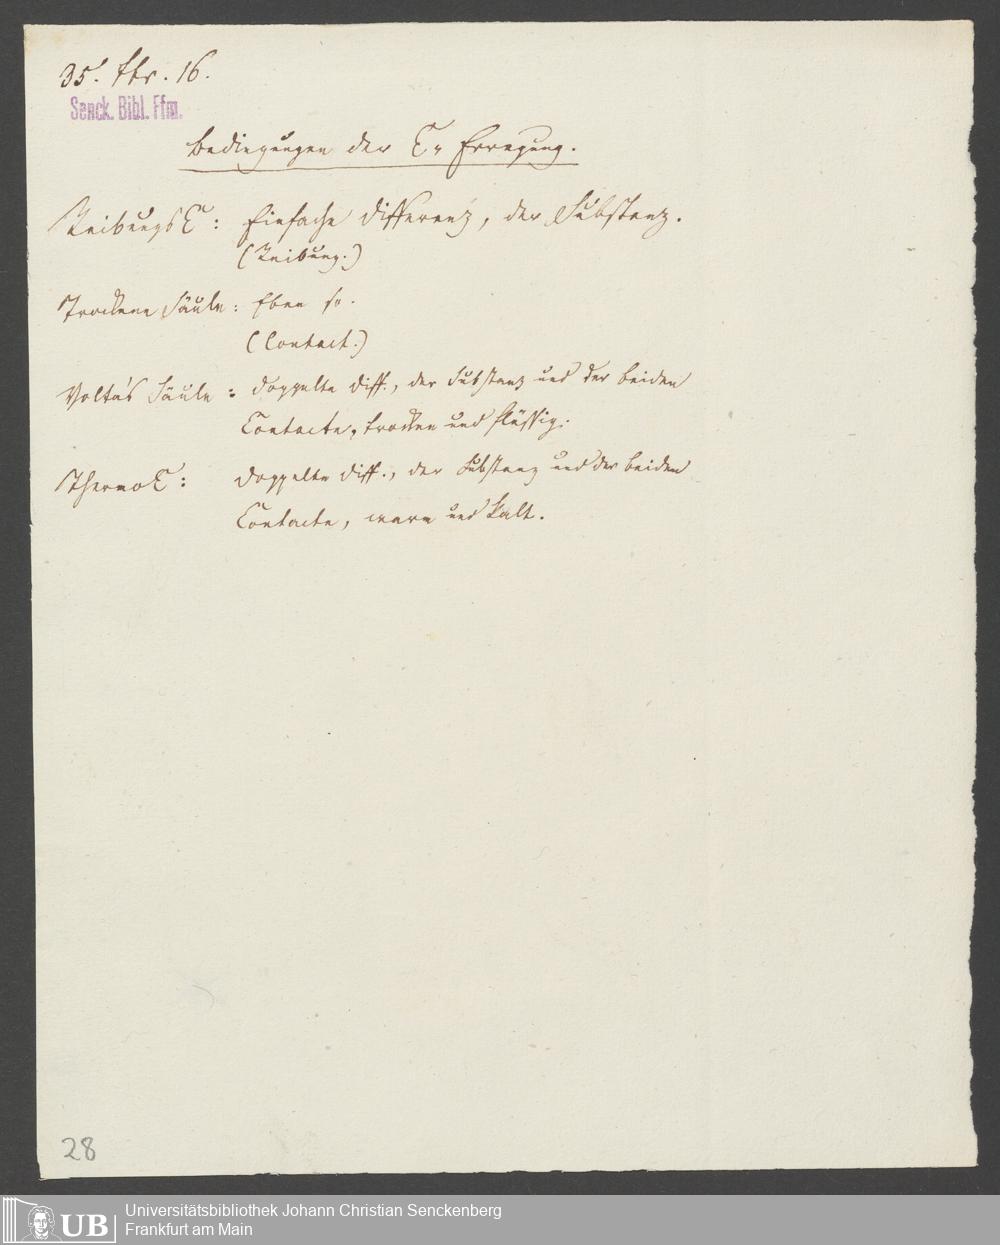 35. Fbr. 16.
Senck. Bibl. Ffm.
Bedingungen der E, Erregung.
ReibungsE: Einfache Differenz, der Substanz.
(Reibung.)
Trockene Säule: Eben so.
(Contact.)
Volta's Säule: Doppelte Diff., der Substanz und der beiden
Contacte, trocken und flüssig.
ThermoE: Doppelte Diff., der Substanz und der beiden
Contacte, warm und kalt.
28
UB Universitätsbibliothek Johann Christian Senckenberg
Frankfurt am Main